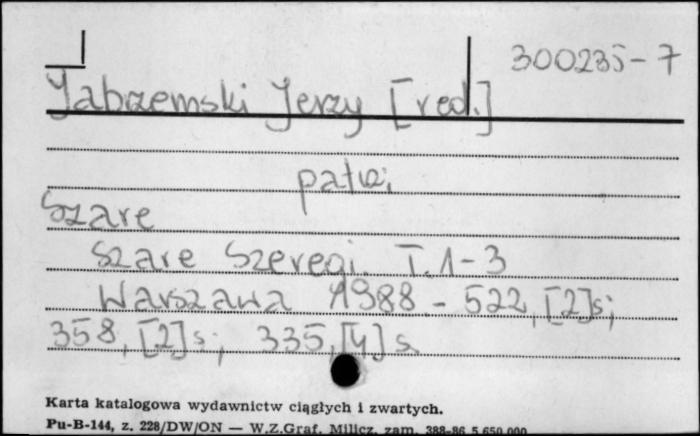 300235-7
Jabrzemski Jerzy [red.]
patrz:
Szare
Szare Szeregi. T. 1-3
Warszawa 1988. - 522, [2] s;
358, [2] s; 335, [4] s.
Karta katalogowa wydawnictw ciągłych i zwartych.
Pu-B-144, z. 228/DW/ON — W.Z.Graf. Milicz, zam. 388-86 5.650.000